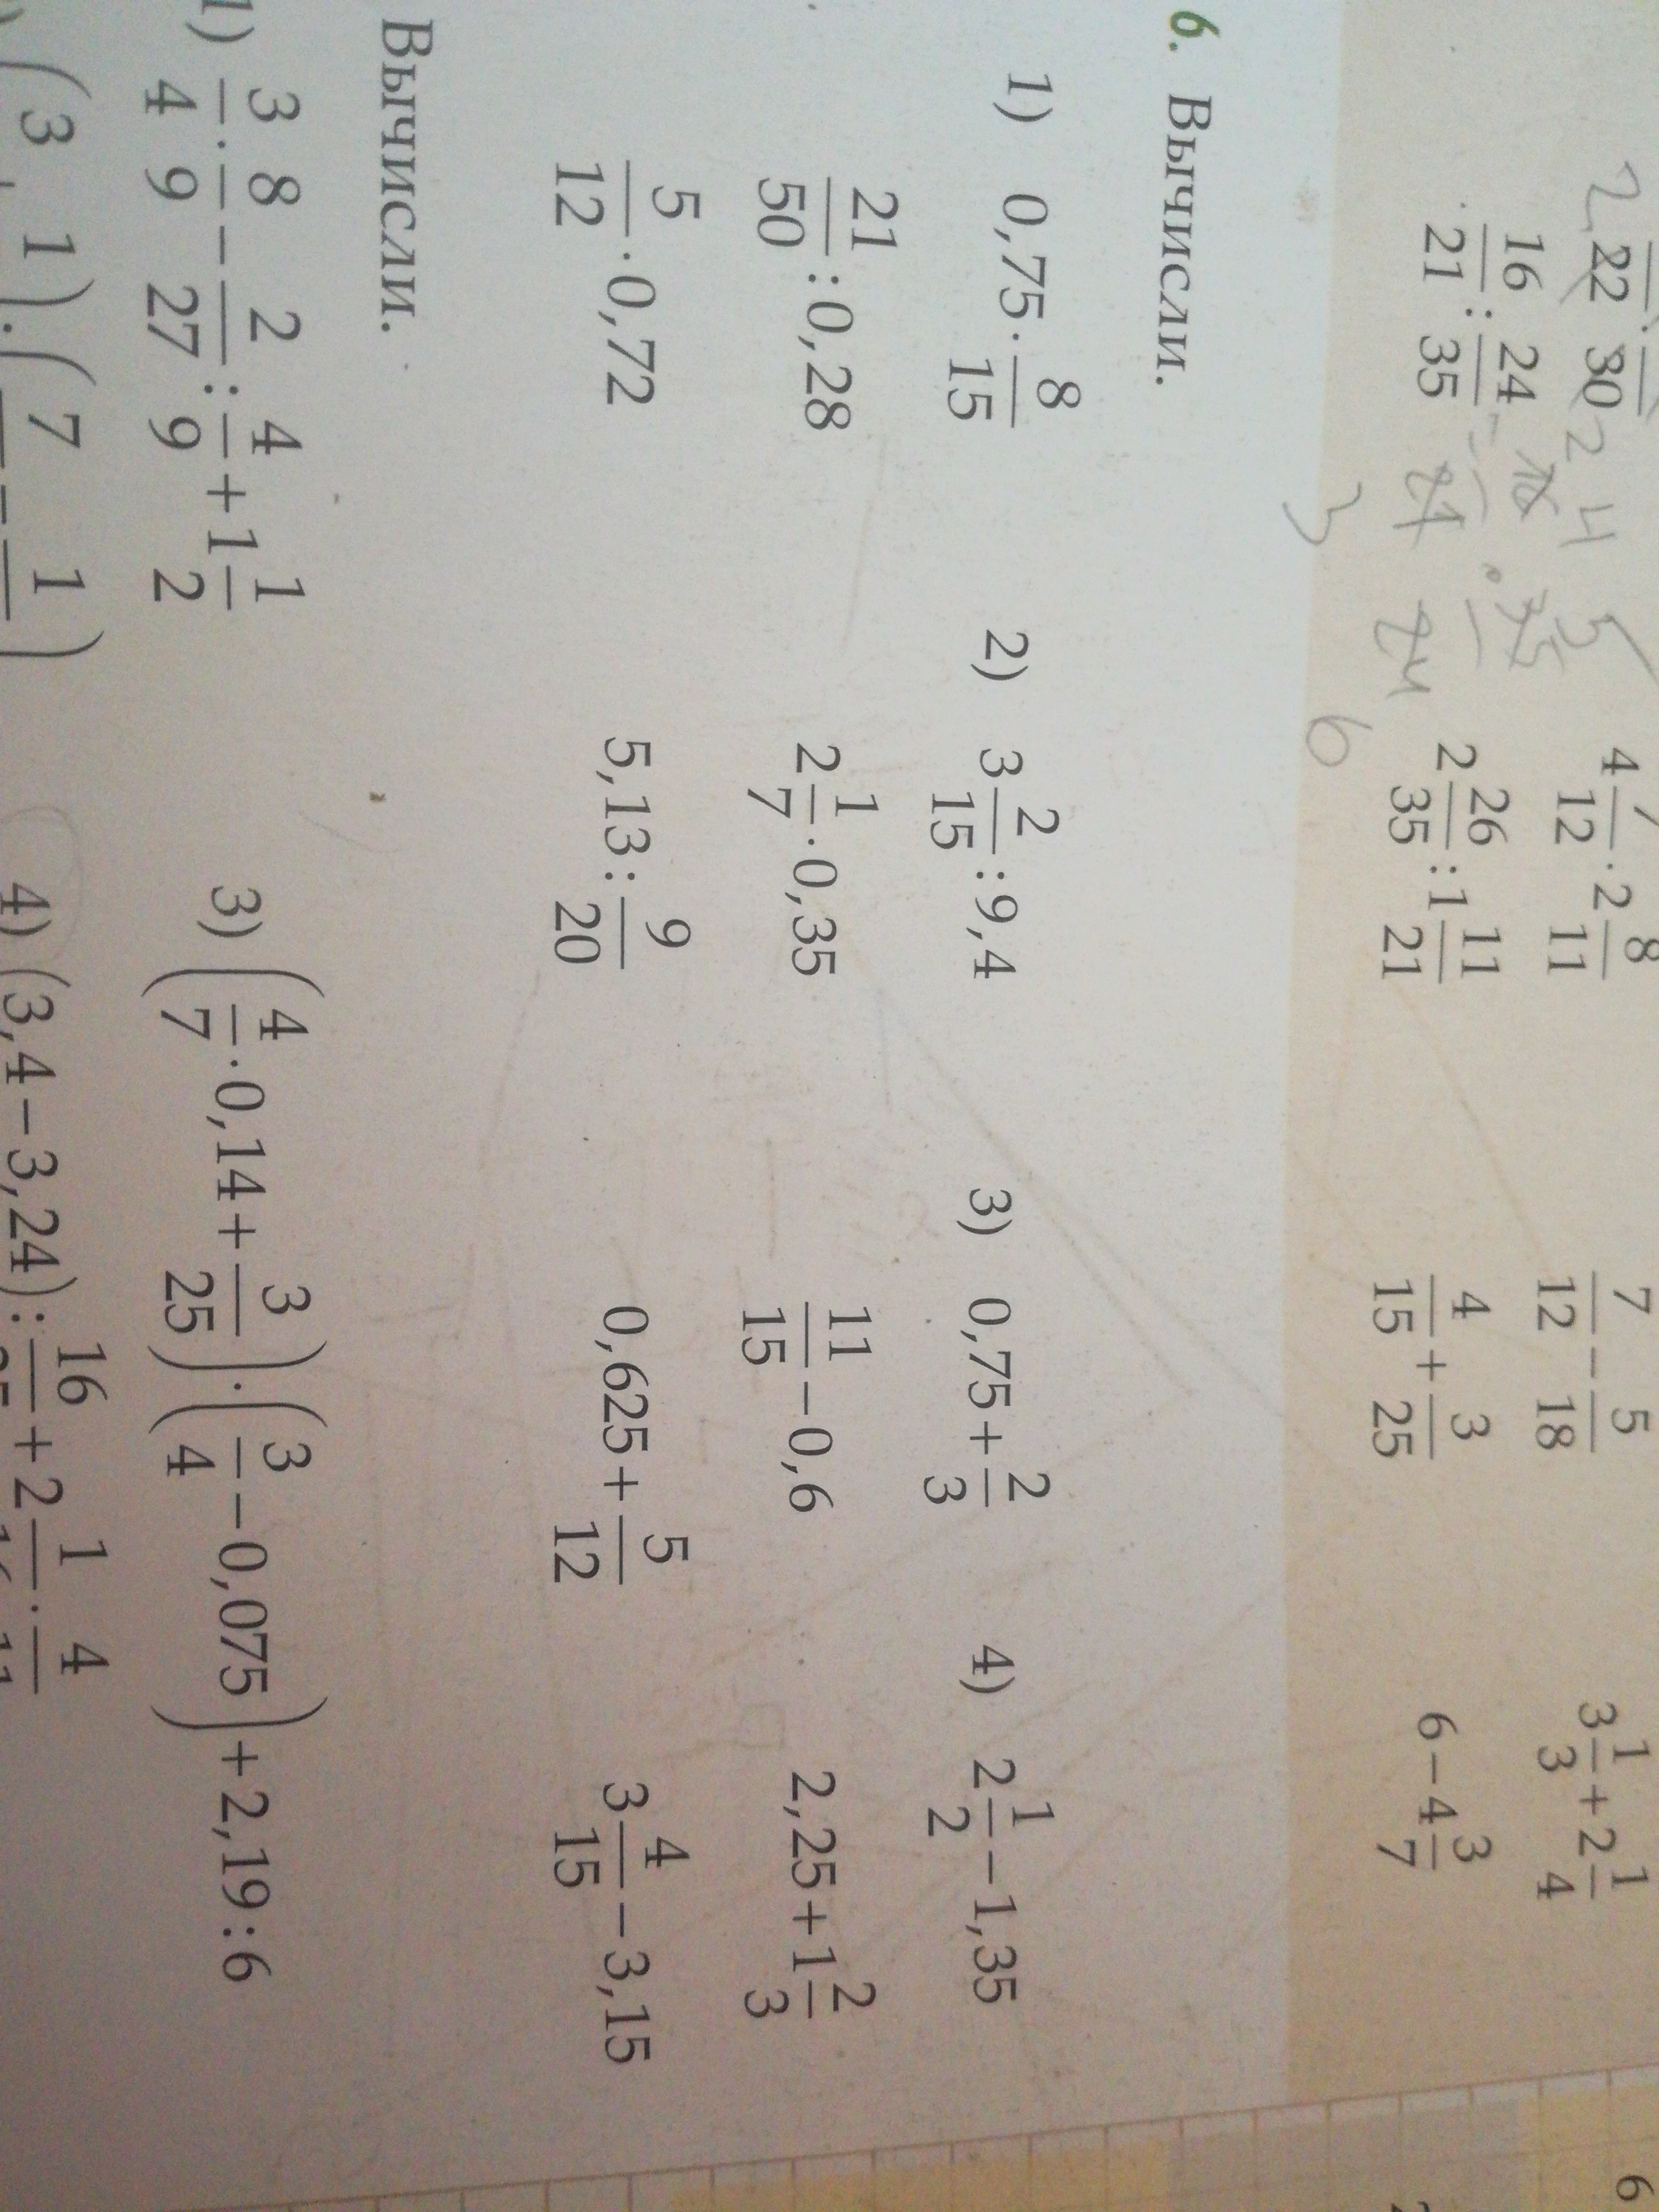 22 · 30 4 7/12 · 2 8/11 7/12 − 5/18 3 1/3 + 2 1/4
16/21 : 24/35 2 26/35 : 1 11/21 4/15 + 3/25 6 − 4 3/7
6. Вычисли.
1) 0,75 · 8/15 2) 3 2/15 : 9,4 3) 0,75 + 2/3 4) 2 1/2 − 1,35
21/50 : 0,28 2 1/7 · 0,35 11/15 − 0,6 2,25 + 1 2/3
5/12 · 0,72 5,13 : 9/20 0,625 + 5/12 3 4/15 − 3,15
Вычисли.
1) 3/4 · 8/9 − 2/27 : 4/9 + 1 1/2 3) (4/7 · 0,14 + 3/25) · (3/4 − 0,075) + 2,19 : 6
4) (3,4 − 3,24) : 16